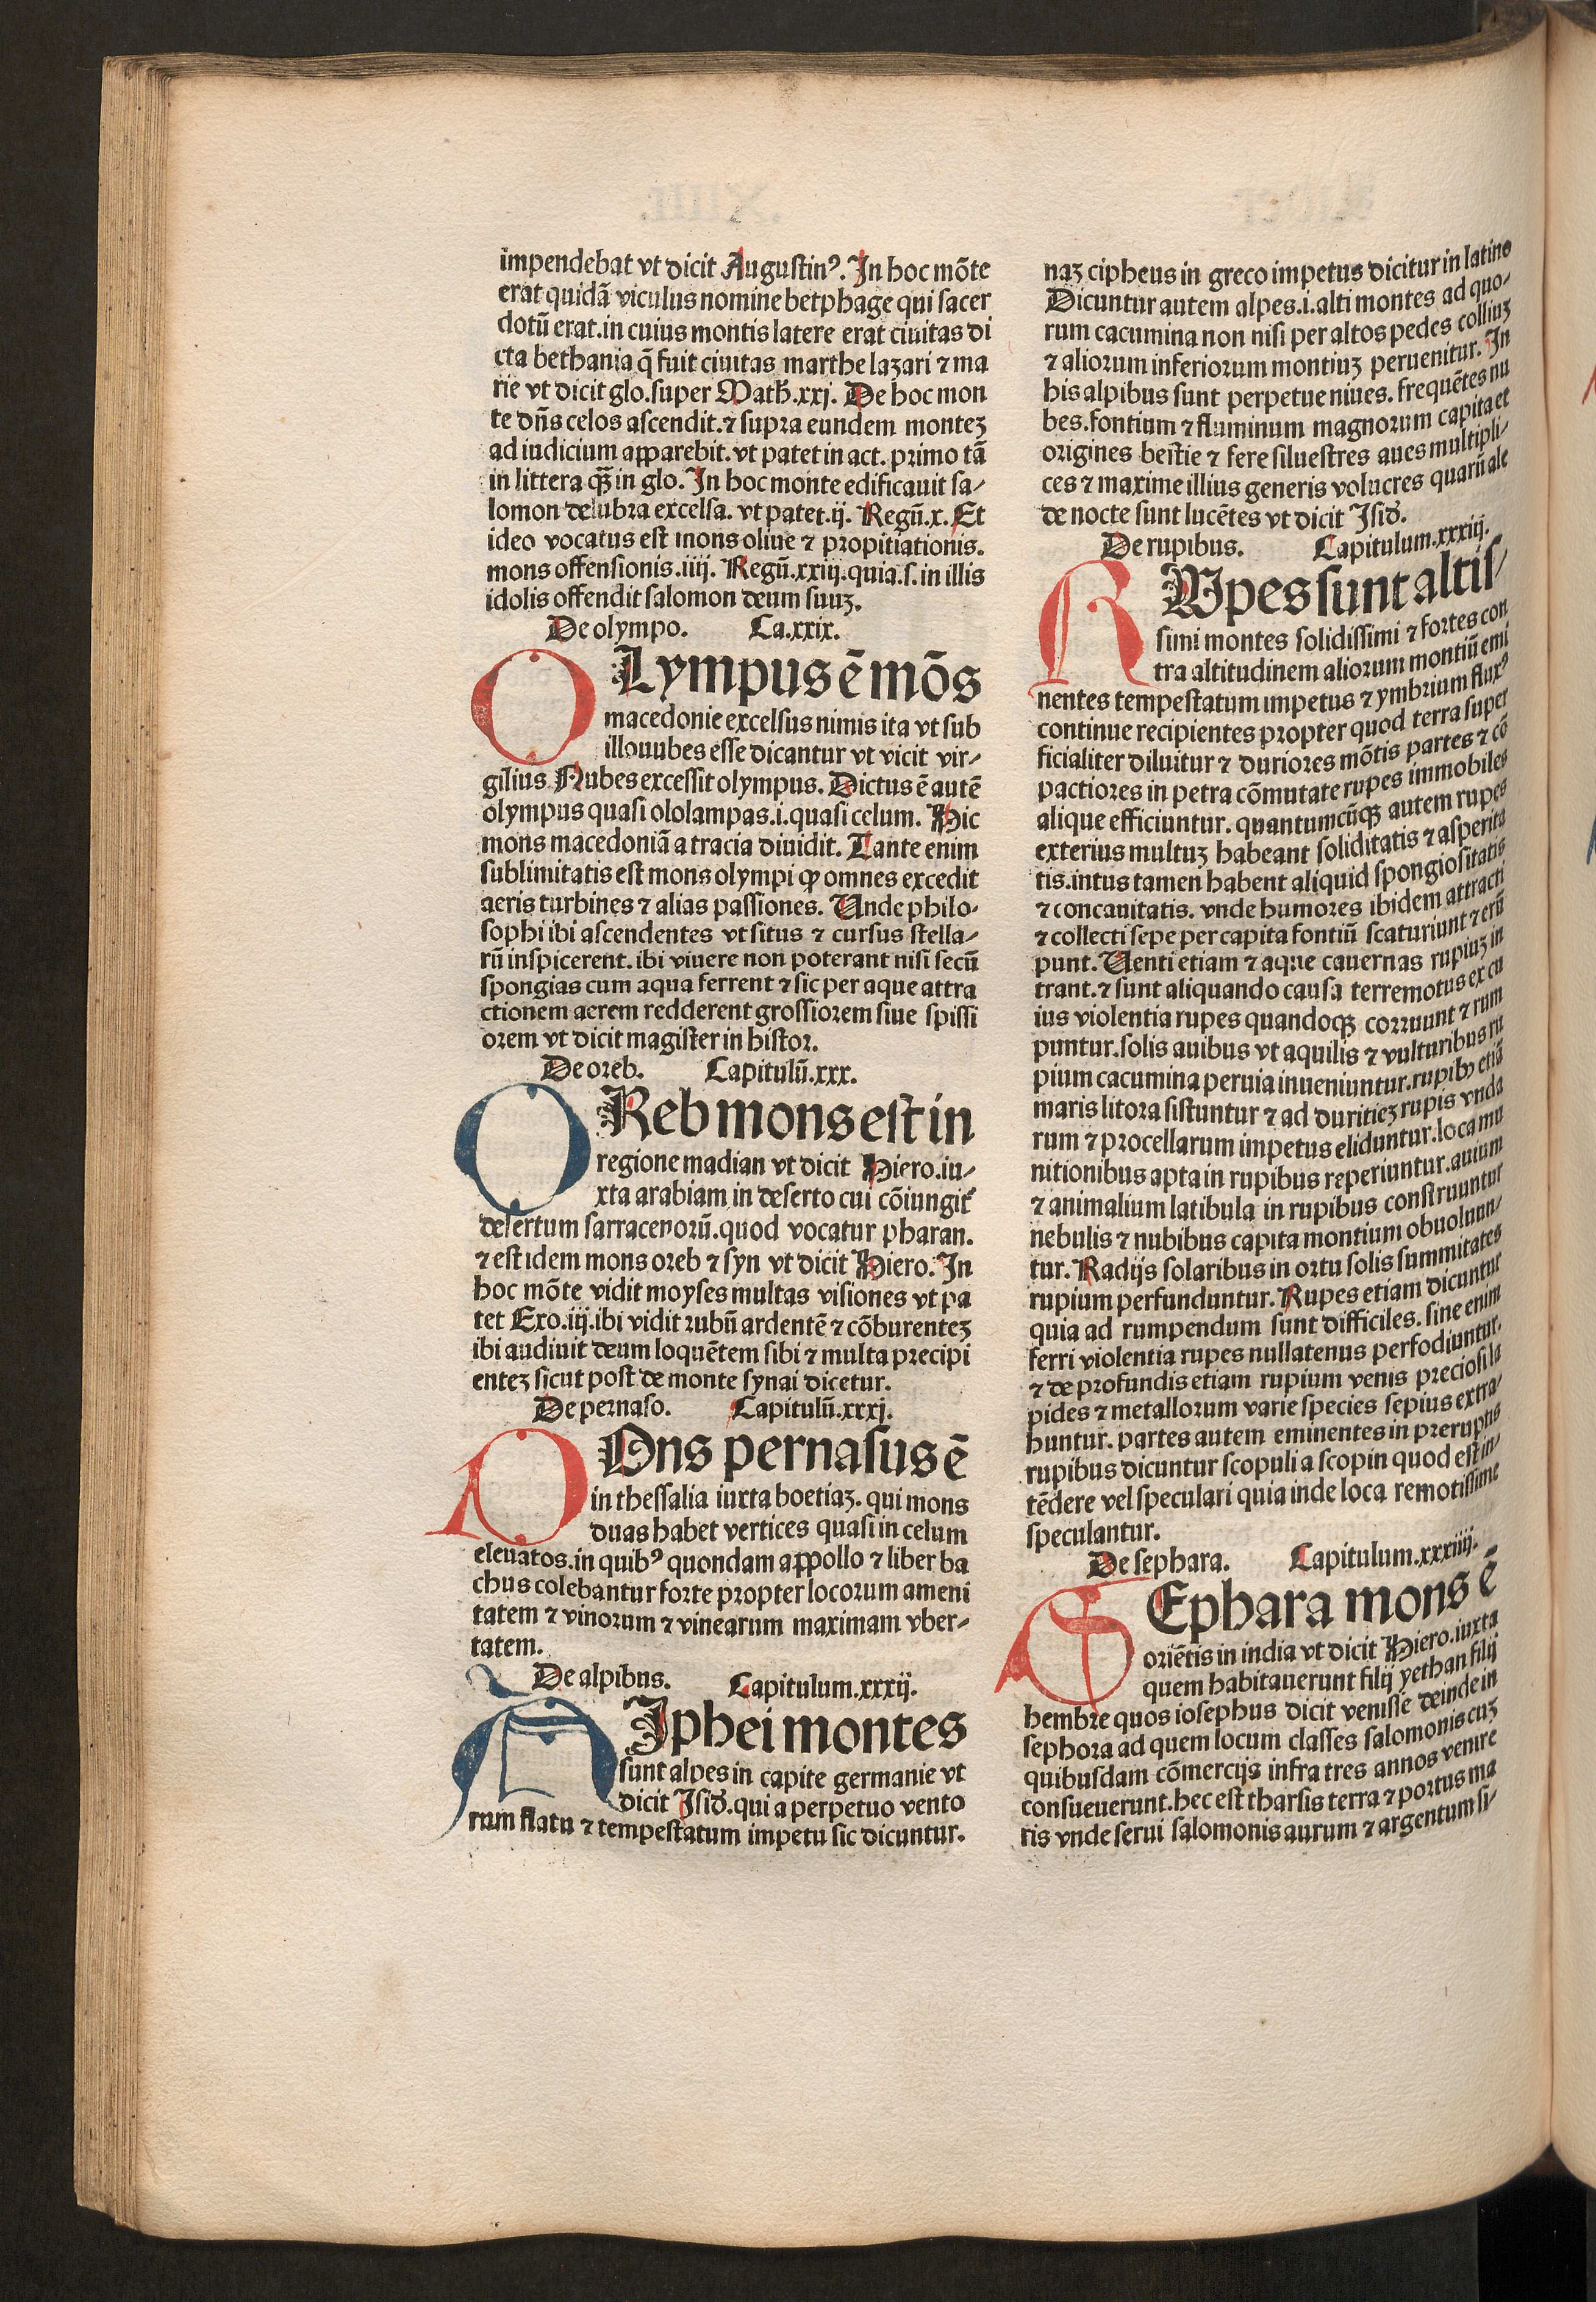 impendebat vt dicit Augustinꝰ. In hoc mōte
erat quidā viculus nomine betphage qui sacer
dotū erat.in cuius montis latere erat ciuitas di
cta bethania q̄ fuit ciuitas marthe lazari ⁊ ma
rie vt dicit glo.super Math̄.xxj. De hoc mon
te dn̄s celos ascendit.⁊ supra eundem monteꝫ
ad iudicium apparebit.vt patet in act. primo tā
in littera qꝫ̄ in glo. In hoc monte edificauit sa⸗
lomon delubra excelsa. vt patet.ij. Regū.x. Et
ideo vocatus est mons oliue ⁊ propitiationis.
mons offensionis.iiij. Regū.xxiij.quia.s.in illis
idolis offendit salomon deum suuꝫ.
De olympo. Ca.xxix.
OLympus ē mōs
macedonie excelsus nimis ita vt sub
illo nubes esse dicantur vt vicit vir⸗
gilius Nubes excessit olympus. Dictus ē autē
olympus quasi ololampas.i.quasi celum. Hic
mons macedoniā a tracia diuidit. Tante enim
sublimitatis est mons olympi ꝙ omnes excedit
aeris turbines ⁊ alias passiones. Unde philo⸗
sophi ibi ascendentes vt situs ⁊ cursus stella⸗
rū inspicerent.ibi viuere non poterant nisi secū
spongias cum aqua ferrent ⁊ sic per aque attra
ctionem aerem redderent grossiorem siue spissi
orem vt dicit magister in histor.
De oreb. Capitulū.xxx.
OReb mons est in
regione madian vt dicit Hiero.iu⸗
xta arabiam in deserto cui cōiungit᷑
desertum sarracenorū.quod vocatur pharan.
⁊ est idem mons oreb ⁊ syn vt dicit Hiero. In
hoc mōte vidit moyses multas visiones vt pa
tet Exo.iij.ibi vidit rubū ardentē ⁊ cōburenteꝫ
ibi audiuit deum loquētem sibi ⁊ multa precipi
enteꝫ sicut post de monte synai dicetur.
De pernaso. Capitulū.xxxj.
MOns pernasus ē
in thessalia iuxta boetiaꝫ. qui mons
duas habet vertices quasi in celum
eleuatos.in quibꝰ quondam appollo ⁊ liber ba
chus colebantur forte propter locorum ameni
tatem ⁊ vinorum ⁊ vinearum maximam vber⸗
tatem.
De alpibus. Capitulum.xxxij.
RIphei montes
sunt alpes in capite germanie vt
dicit Isid̄.qui a perpetuo vento
rum flatu ⁊ tempestatum impetu sic dicuntur.
naꝫ cipheus in greco impetus dicitur in latino
Dicuntur autem alpes.i.alti montes ad quo⸗
rum cacumina non nisi per altos pedes colliuꝫ
⁊ aliorum inferiorum montiuꝫ peruenitur. In
his alpibus sunt perpetue niues. frequētes nu
bes.fontium ⁊ fluminum magnorum capita et
origines bestie ⁊ fere siluestres aues multipli⸗
ces ⁊ maxime illius generis volucres quarū ale
de nocte sunt lucētes vt dicit Isid̄.
De rupibus. Capitulum.xxxiij.
RUpes sunt altis⸗
simi montes solidissimi ⁊ fortes con
tra altitudinem aliorum montiū emi
nentes tempestatum impetus ⁊ ymbrium fluxꝰ
continue recipientes propter quod terra super
ficialiter diluitur ⁊ duriores mōtis partes ⁊ cō
pactiores in petra cōmutate rupes immobiles
alique efficiuntur. quantumcūqꝫ autem rupes
exterius multuꝫ habeant soliditatis ⁊ asperita
tis.intus tamen habent aliquid spongiositatis
⁊ concauitatis. vnde humores ibidem attracti
⁊ collecti sepe per capita fontiū scaturiunt ⁊ erū
punt. Uenti etiam ⁊ aque cauernas rupiuꝫ in
trant.⁊ sunt aliquando causa terremotus ex cu
ius violentia rupes quandoqꝫ corruunt ⁊ rum
puntur.solis auibus vt aquilis ⁊ vulturibus ru
pium cacumina peruia inueniuntur.rupibꝫ etiā
maris litora sistuntur ⁊ ad duritieꝫ rupis vnda
rum ⁊ procellarum impetus eliduntur.loca mu
nitionibus apta in rupibus reperiuntur.auium
⁊ animalium latibula in rupibus construuntur
nebulis ⁊ nubibus capita montium obuoluun⸗
tur. Radijs solaribus in ortu solis summitates
rupium perfunduntur. Rupes etiam dicuntur
quia ad rumpendum sunt difficiles. sine enim
ferri violentia rupes nullatenus perfodiuntur.
⁊ de profundis etiam rupium venis preciosi la
pides ⁊ metallorum varie species sepius extra⸗
huntur. partes autem eminentes in preruptis
rupibus dicuntur scopuli a scopin quod est in⸗
tēdere vel speculari quia inde loca remotissime
speculantur.
De sephara. Capitulum.xxxiiij.
SEphara mons ē
oriētis in india vt dicit Hiero.iuxta
quem habitauerunt filij yethan filij
hembre quos iosephus dicit venisse deinde in
sephora ad quem locum classes salomonis cuꝫ
quibusdam cōmercijs infra tres annos venire
consueuerunt.hec est tharsis terra ⁊ portus ma
ris vnde serui salomonis aurum ⁊ argentum si⸗